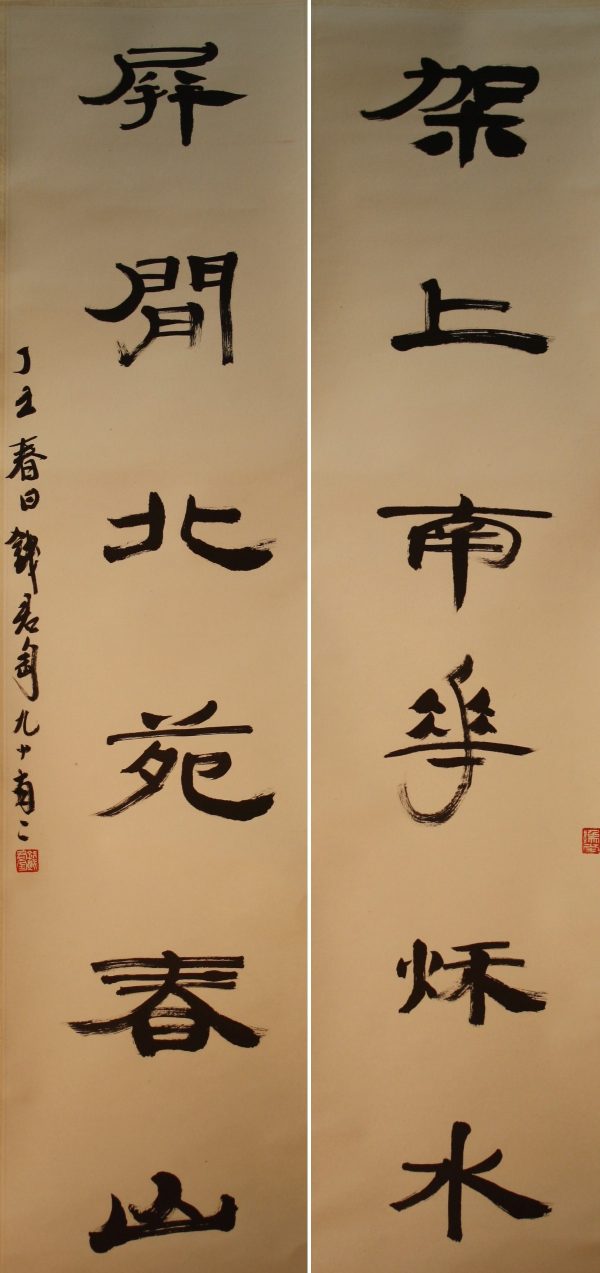 架上南華秌水
屏間北苑春山
丁丑春日錢君匋九十有二